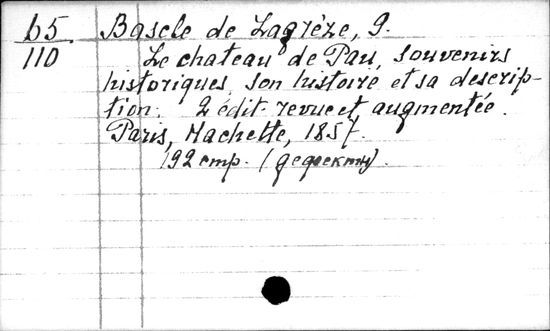 b5
110
Bascle de Lagrèze, G.
Le chateau de Pau, souvenirs
historiques, son histoire et sa descrip-
tion. 2 édit. revue et augmentée.
Paris, Hachette, 1857.
192 стр.